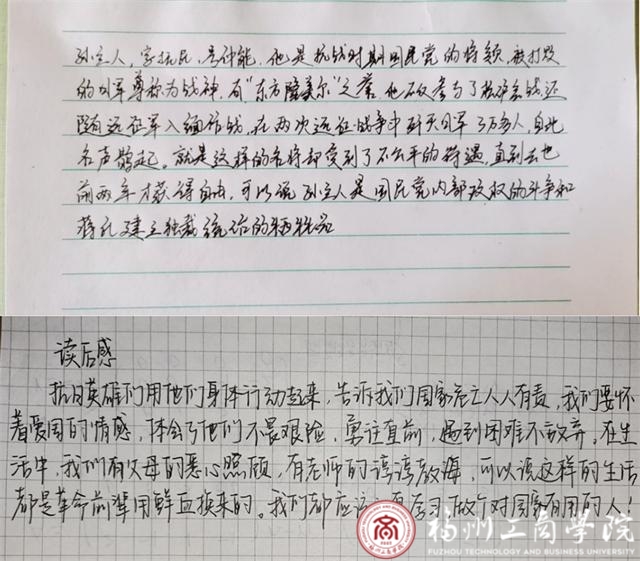 孙立人，字抚民，号仲能，他是抗战时期国民党的将领，被打败
的日军尊称为战神，有“东方隆美尔”之誉。他不仅参与了松沪会战，还
随远征军入缅作战，在两次远征战争中歼灭日军了万多人，自此
名声鹊起。就是这样的名将却受到了不公平的待遇，直到去世
前两年才获得自由，可以说孙立人是国民党内部政权的斗争和
蒋氏建立独裁统治的牺牲品
读后感
抗日英雄们用他们身体行动起来，告诉我们国家危亡人人有责，我们要怀
着爱国的情感，体会了他们不畏艰险，勇往直前，遇到困难不放弃，在生
活中，我们有父母的悉心照顾，有老师的谆谆教诲，可以说这样的生活
都是革命前辈用鲜血换来的。我们都应该学习做个对国家有用的人！
福州工商学院
FUZHOU TECHNOLOGY AND BUSINESS UNIVERSITY